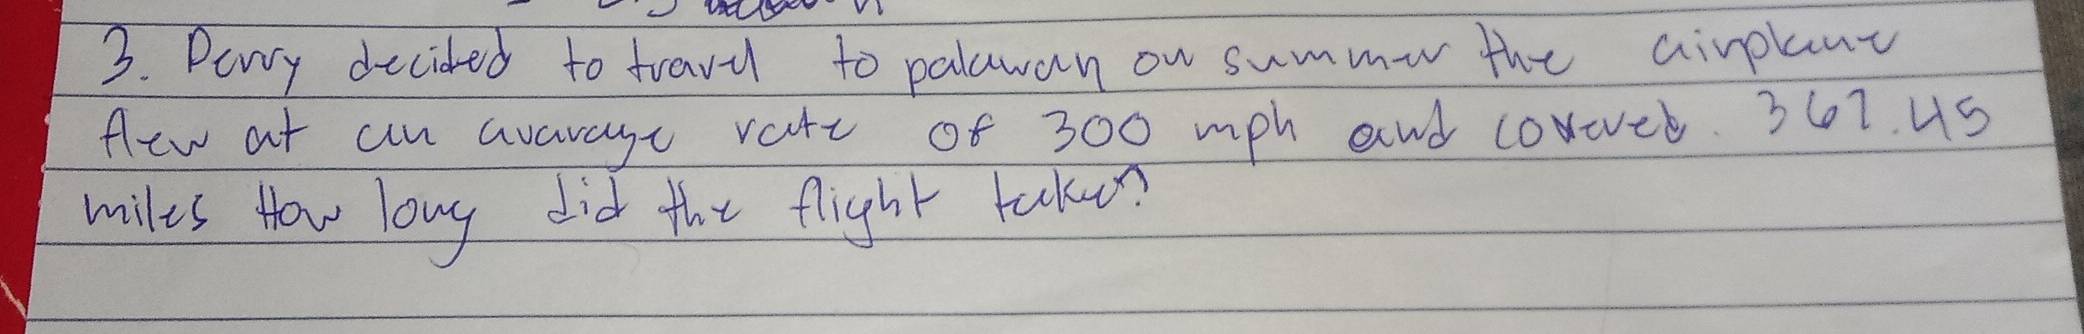 3. Perry decided to travel to palawan on summer the airplane
flew at an avarage rate of 300 mph and covered. 367.45
miles How long did the flight taken?